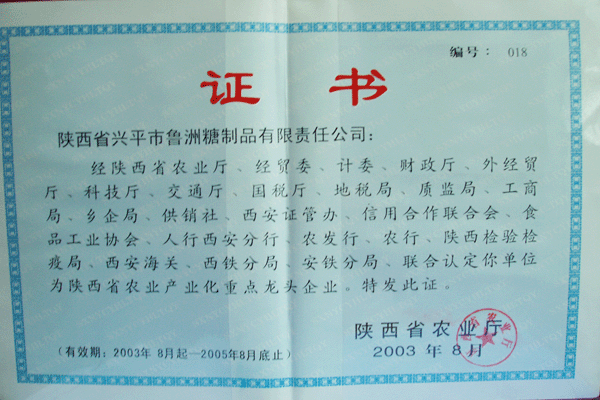 编号： 018
证书
陕西省兴平市鲁洲糖制品有限责任公司：
经陕西省农业厅、经贸委、计委、财政厅、外经贸
厅、科技厅、交通厅、国税厅、地税局、质监局、工商
局、乡企局、供销社、西安证管办、信用合作联合会、食
品工业协会、人行西安分行、农发行、农行、陕西检验检
疫局、西安海关、西铁分局、安铁分局、联合认定你单位
为陕西省农业产业化重点龙头企业。特发此证。
陕西省农业厅
（有效期：2003年 8月起—2005年8月底止）
2003 年 8月